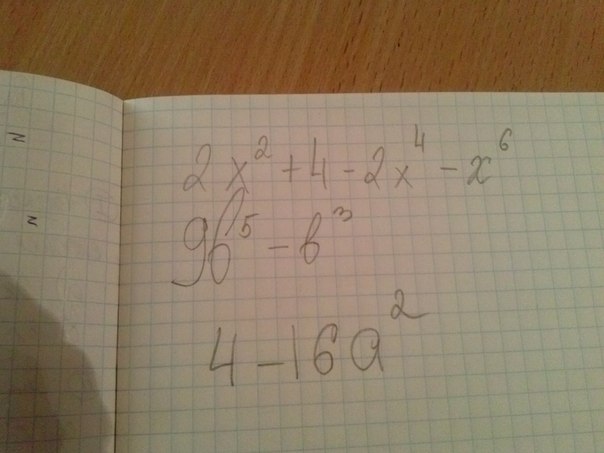 2x² + 4 - 2x⁴ - x⁶
9б⁵ - в³
4 - 16a²